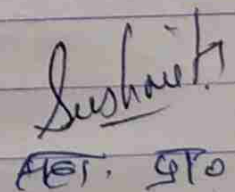 Sushant
महा. प्र०